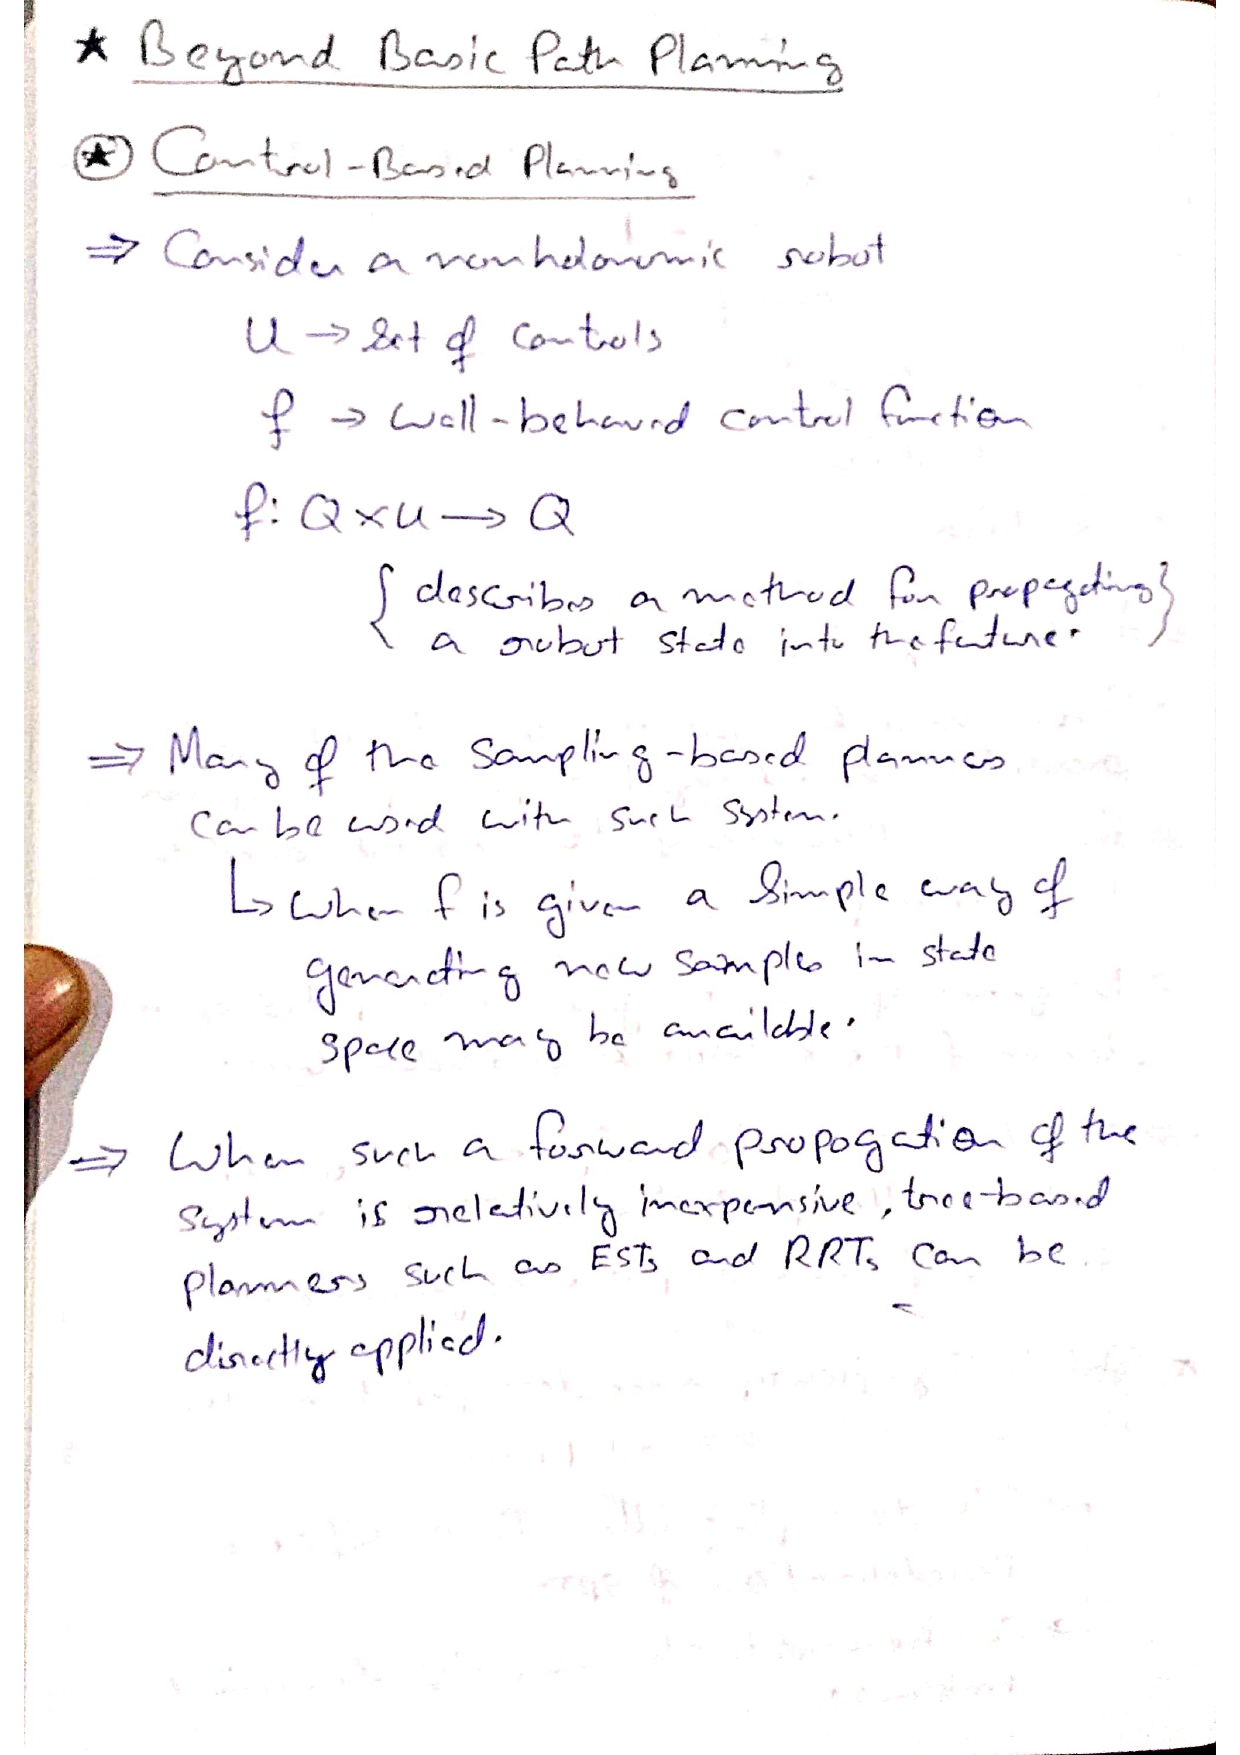 ★ Beyond Basic Path Planning
★ Control-Based Planning
⇒ Consider a nonholonomic robot
U → Set of controls
f → Well-behaved control function
f: Q×U → Q
{ describes a method for propagating }
a robot state into the future.
⇒ Many of the Sampling-based planners
Can be used with such system.
↳ When f is given a Simple way of
generating new samples in state
space may be available.
⇒ When such a forward propogation of the
System is relatively inexpensive, tree-based
planners such as ESTs and RRTs Can be
directly applied.